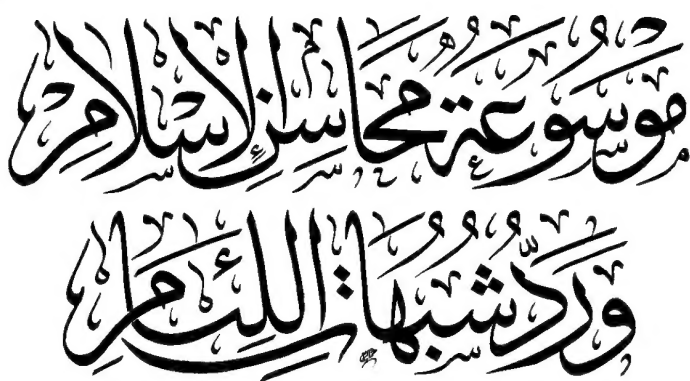 مَوْسُوعَةُ مَحَاسِنِ الإِسْلَامِ
وَرَدِّ شُبُهَاتِ اللِّئَامِ